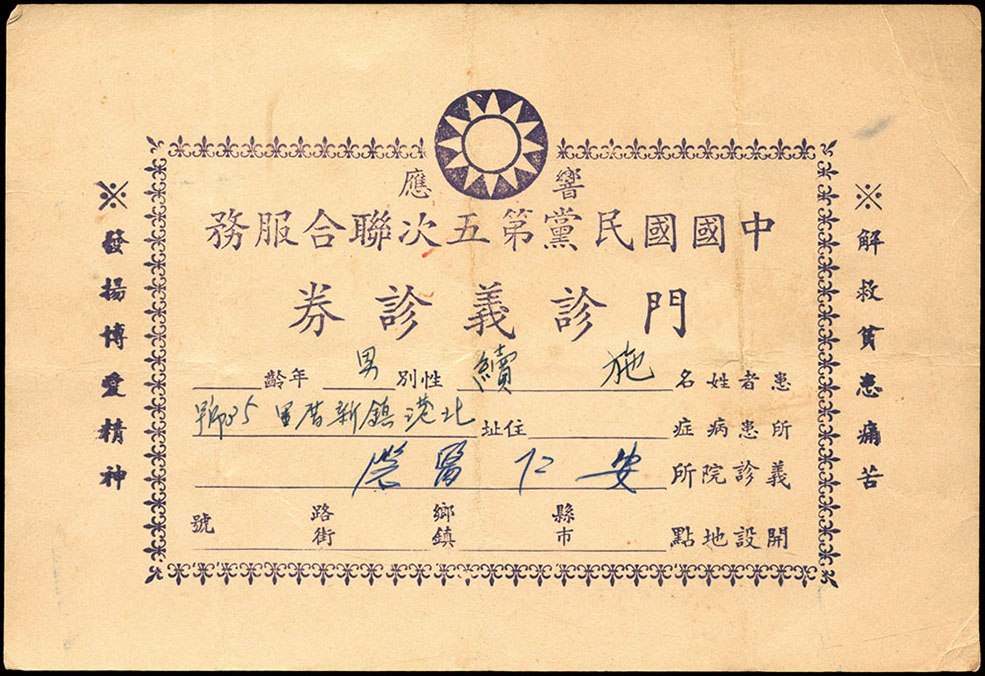 響應
中國國民黨第五次聯合服務
門診義診券
患者姓名 施續 性別 男 年齡
所患病症 住址 北港鎮新厝里35號
義診院所 安仁醫院
開設地點 縣市 鄉鎮 路街 號
※解救貧患痛苦
※發揚博愛精神